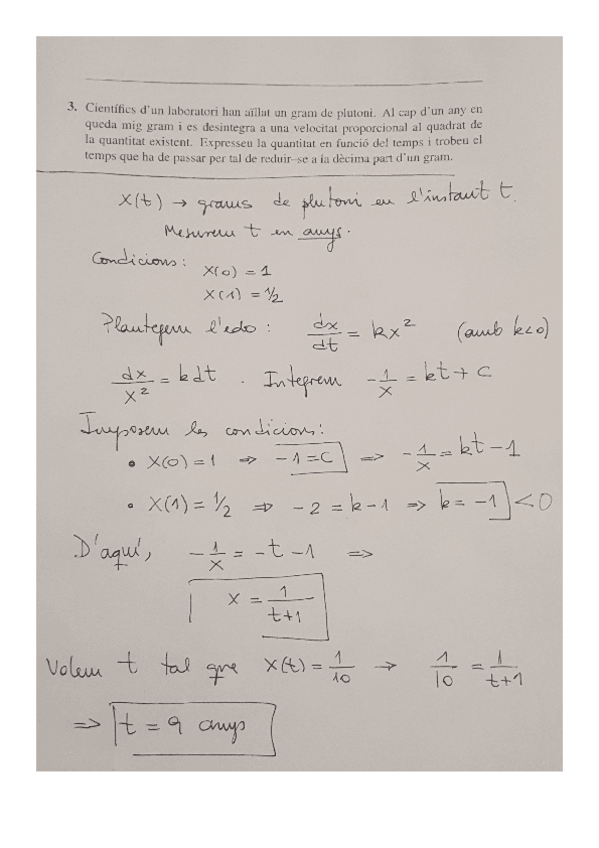 3. Científics d'un laboratori han aïllat un gram de plutoni. Al cap d'un any en
queda mig gram i es desintegra a una velocitat proporcional al quadrat de
la quantitat existent. Expresseu la quantitat en funció del temps i trobeu el
temps que ha de passar per tal de reduir-se a la dècima part d'un gram.
X(t) → grams de plutoni en l'instant t.
Mesurem t en anys.
Condicions: X(0) = 1
X(1) = 1/2
Plantegem l'edo: dx/dt = kx² (amb k<0)
dx/x² = kdt . Integrem -1/x = kt + C
Imposem les condicions:
• X(0) = 1 ⇒ -1 = C ⇒ -1/x = kt - 1
• X(1) = 1/2 ⇒ -2 = k - 1 ⇒ k = -1 < 0
D'aquí, -1/x = -t - 1 ⇒
x = 1/(t+1)
Volem t tal que X(t) = 1/10 → 1/10 = 1/(t+1)
⇒ t = 9 anys